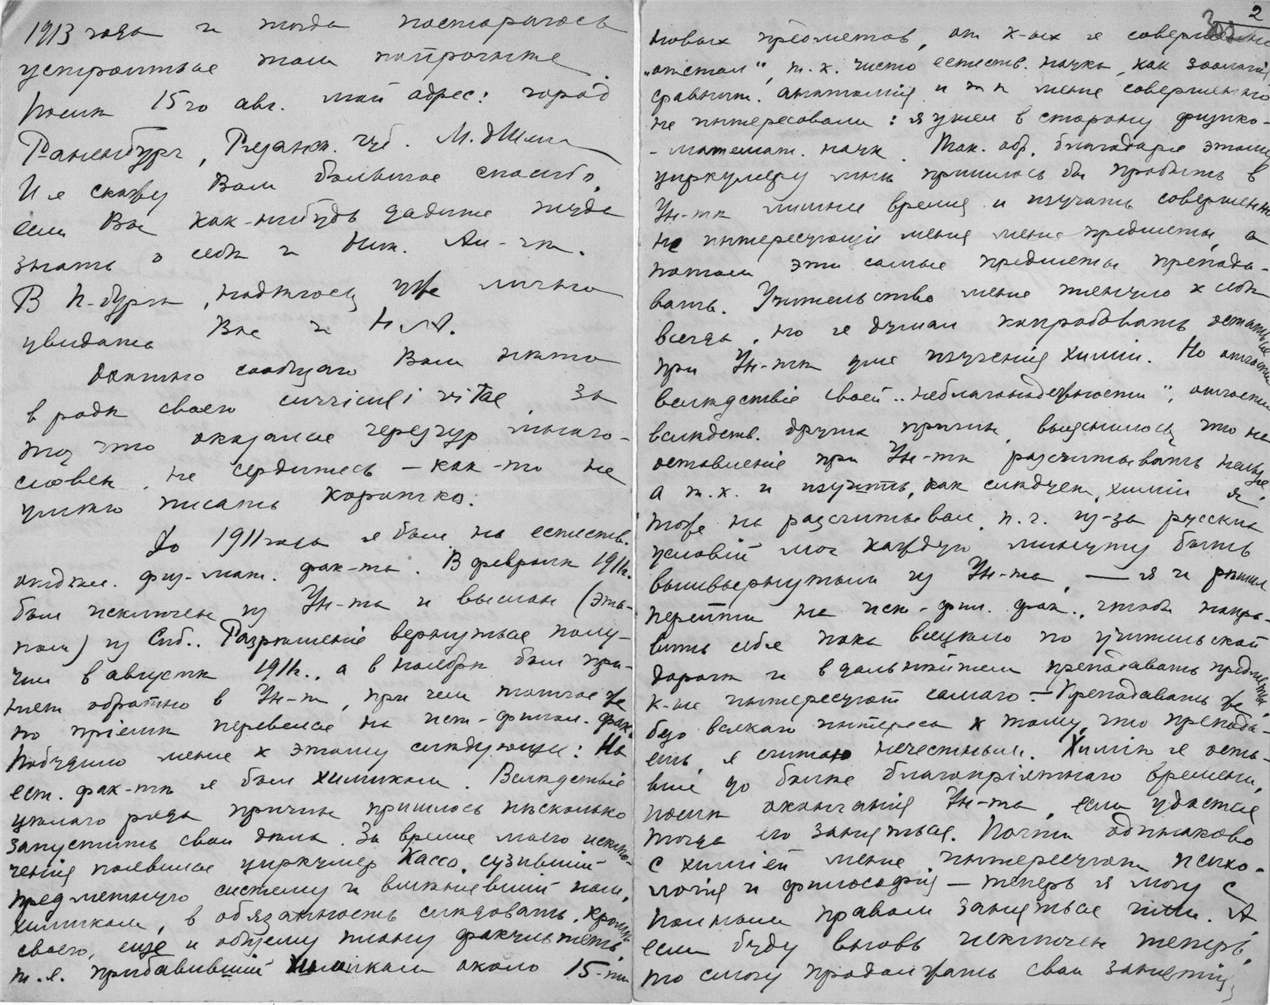 1913 года и тогда постараюсь
устроиться там попрочнѣе.
Послѣ 15го авг. мой адрес: город
Раненбург, Рязанск. губ. М. д
И я скажу Вам большое спасибо,
если Вы как-нибудь дадите туда
знать о себѣ и Ник. Ал-чѣ.
В П-бургѣ, надѣюсь, уже лично
увидать Вас и Н.А.
Вам нѣчто
в родѣ своего curriculi vitae, за
то, что оказался чересчур много-
словен, не сердитесь — как-то не
умѣю писать коротко.
До 1911 года я был на естеств.
отдѣл. физ-мат. фак-та. В февралѣ 1911г.
был исключен из Ун-та и выслан (эта-
пом) из Спб.. Разрѣшеніе вернуться полу-
чил в августѣ 1911г., а в ноябрѣ был при-
нят обратно в Ун-т, при чем тотчас же
по пріемѣ перевелся на ист-филол. фак.
Побудило меня к этому слѣдующее: На
ест. фак-тѣ я был химиком. Вслѣдствіе
цѣлаго ряда причин пришлось нѣсколько
запустить свои дѣла. За время моего исклю-
ченія появился циркуляр Кассо, сузившій
предметную систему и вмѣнившій нам,
химикам, в обязанность слѣдовать, кромѣ
своего, еще и общему плану факультета,
т.е. прибавившій химикам около 15-ти
2
новых предметов, от к-ых я совершенно
„отстал“, т.к. чисто естеств. науки, как зоологія,
сравнит. анатомія и т п меня совершенно
не интересовали: я ушел в сторону физико-
-математ. наук. Так. обр. благодаря этому
циркуляру мнѣ пришлось бы пробыть в
Ун-тѣ лишнее время и изучать совершенно
не интересующіе меня предметы, а
потом эти самые предметы препода-
вать. Учительство меня тянуло к себѣ
всегда, но я думал попробовать остаться
при Ун-тѣ для изученія химіи. Но отчасти
вслѣдствіе своей „неблагонадежности“, отчасти
вслѣдств. других причин, выяснилось, что на
оставленіе при Ун-тѣ разсчитывать нельзя,
а т.к. и изучить, как слѣдует, химію я
тоже не разсчитывал, п.ч. из-за русских
условій мог каждую минуту быть
вышвырнутым из Ун-та, — я и рѣшил
перейти на ист-фил. фак., чтобы напра-
вить себя пока всецѣло по учительской
дорогѣ и в дальнѣйшем преподавать предметы,
к-ые интересуют самого. — Преподавать же
без всякаго интереса к тому, что препода-
ешь, я считаю нечестным. Химію я оста-
вил до болѣе благопріятнаго времени,
послѣ окончанія Ун-та, если удастся
тогда ею заняться. Почти одинаково
с химіей меня интересуют психо-
логія и философія — теперь я могу с
полным правом заняться ими. А
если буду вновь исключен теперь,
то смогу продолжать свои занятія,